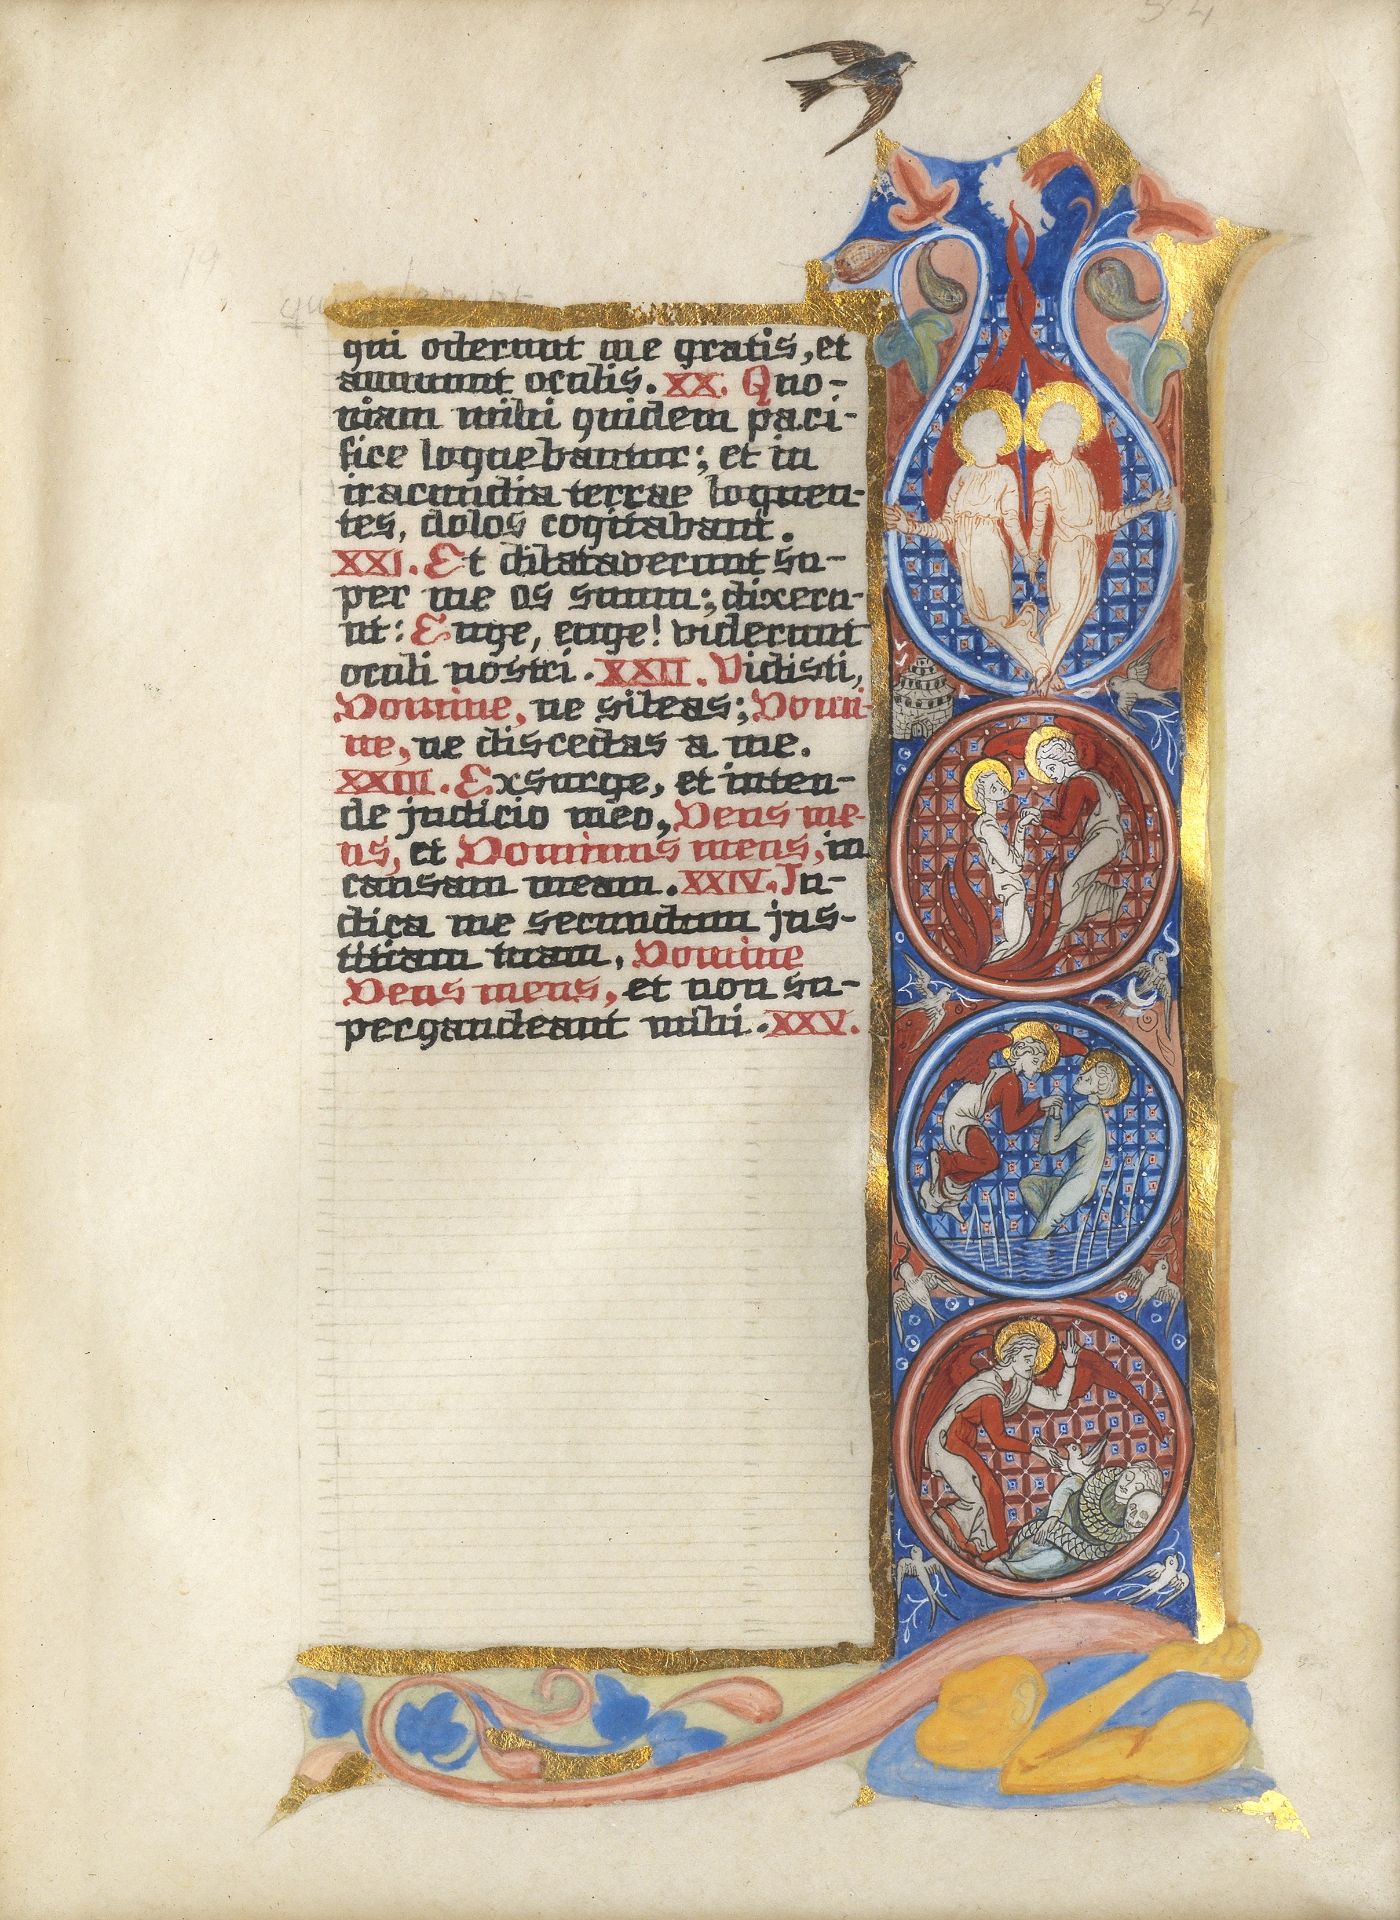 54
19
qui oderunt
qui oderunt me gratis, et
annuunt oculis. XX. Quo-
niam mihi quidem paci-
fice loquebantur; et in
iracundia terrae loquen-
tes, dolos cogitabant.
XXI. Et dilataverunt su-
per me os suum; dixeru-
nt: Euge, euge! viderunt
oculi nostri. XXII. Vidisti,
Domine, ne sileas; Domi-
ne, ne discedas a me.
XXIII. Exsurge, et inten-
de judicio meo, Deus me-
us, et Dominus meus, in
causam meam. XXIV. Ju-
dica me secundum jus-
titiam tuam, Domine
Deus meus, et non su-
pergaudeant mihi. XXV.